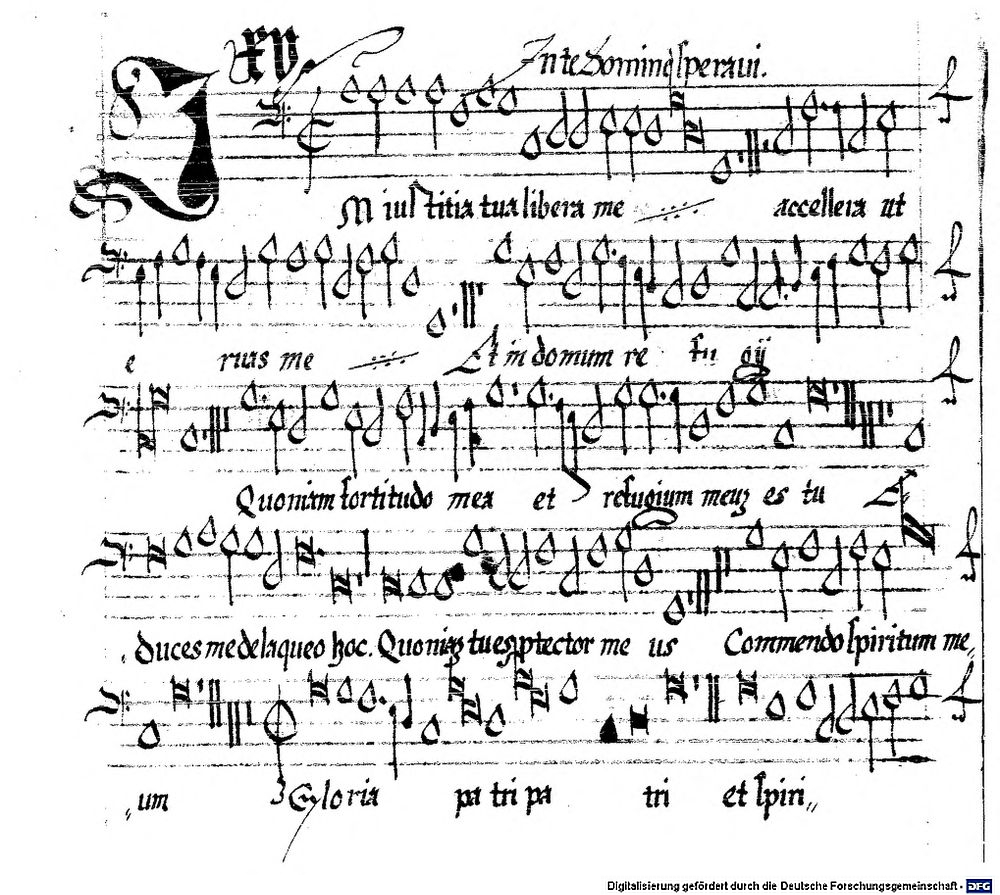 XV In te Domine speravi.
IN iustitia tua libera me accellera ut
e ruas me Et in domum re fu gij
Quoniam fortitudo mea et refugium meuz es tu E
duces me de laqueo hoc. Quoniaz tu es ptector me us Commendo spiritum me„
„um Gloria pa tri pa tri et spiri„
Digitalisierung gefördert durch die Deutsche Forschungsgemeinschaft - DFG